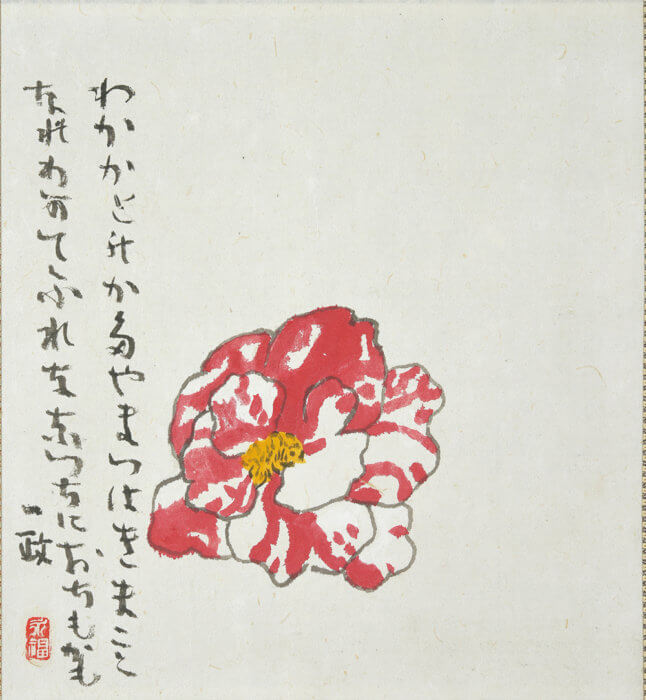 わかかとのかたやまつはきまこと
なれわかてふれなな つちにおちもかも
一政
永福